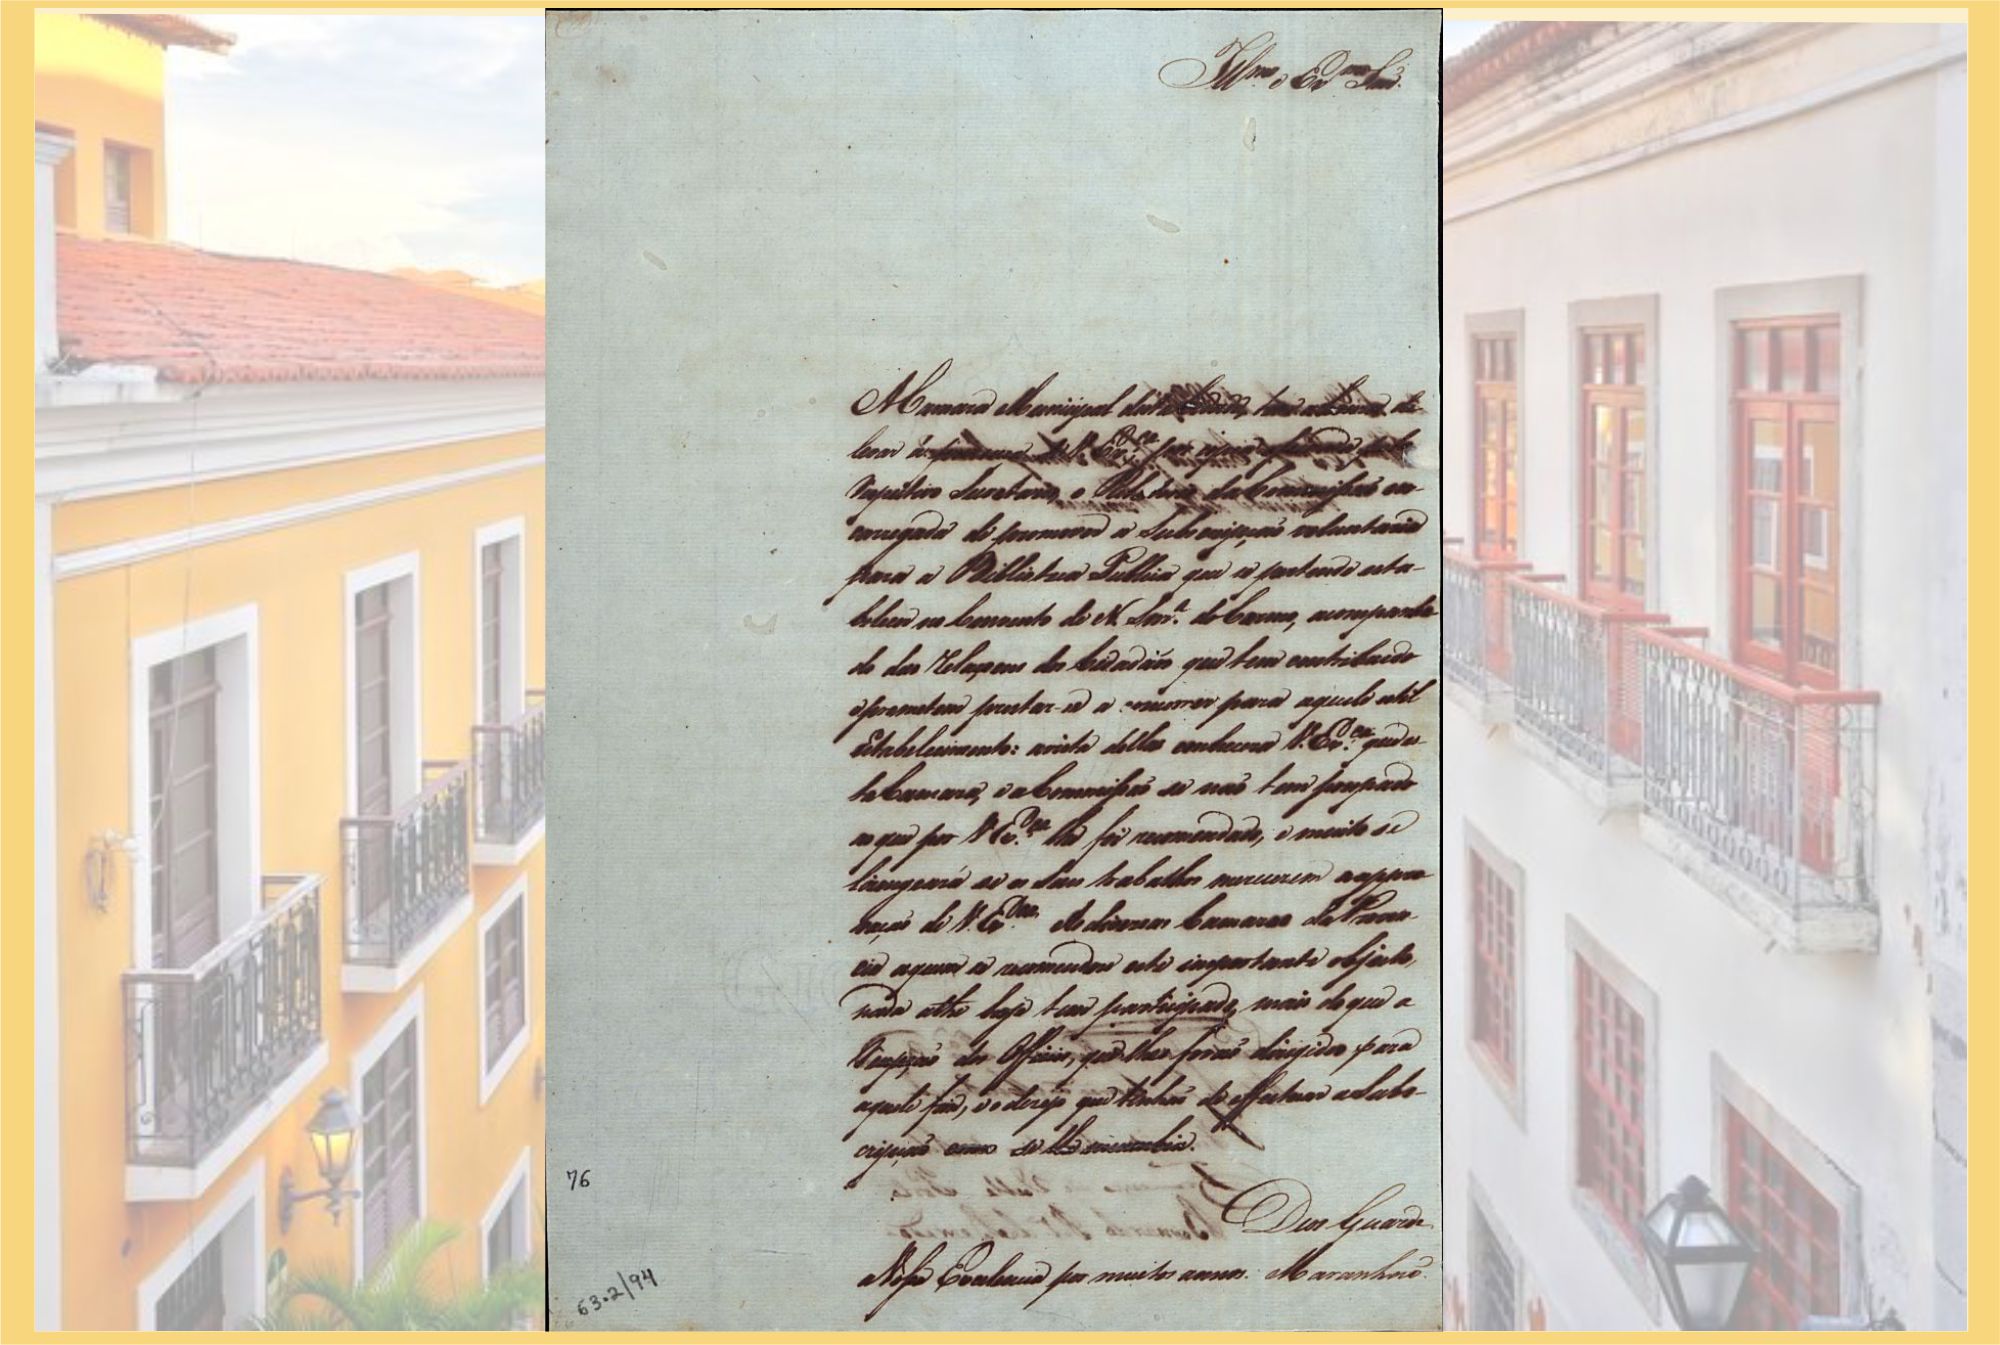 Illmo. e Exmo. Snr.
A Camara Municipal desta Cidade, tem a honra de
levar á presença de V. Exca. por copia
respectivo Secretario, o Relatorio da Commissão en-
carregada de promover a Subscripção voluntaria
para a Bibliotheca Publica que se pretende esta-
belecer no Convento de N. Snra. do Carmo, acompanha
do das Relaçoens dos Cidadãos que tem contribuido
e prometem prestar-se a concorrer para aquelle util
Estabelecimento: avista dellas conhecerá V. Exca. que es-
ta Camara, e a Commissão se não tem poupado
ao que por V. Exca. lhe foi recomendado, e muito se
lisongeará se os seus trabalhos merecerem a appro-
vação de V. Exca. As diversas Camaras da Provin-
cia a quem se recomendou este importante objecto,
nada athe hoje tem participado, mais do que a
recepção dos Officios, que lhes forão dirigidos para
aquele fim, e o dezejo que tinhão de effectuar a Subs-
cripção como se lhe incumbia.
Deos Guarde
a Vossa Excelencia por muitos annos. Maranhão
76
63.2/94